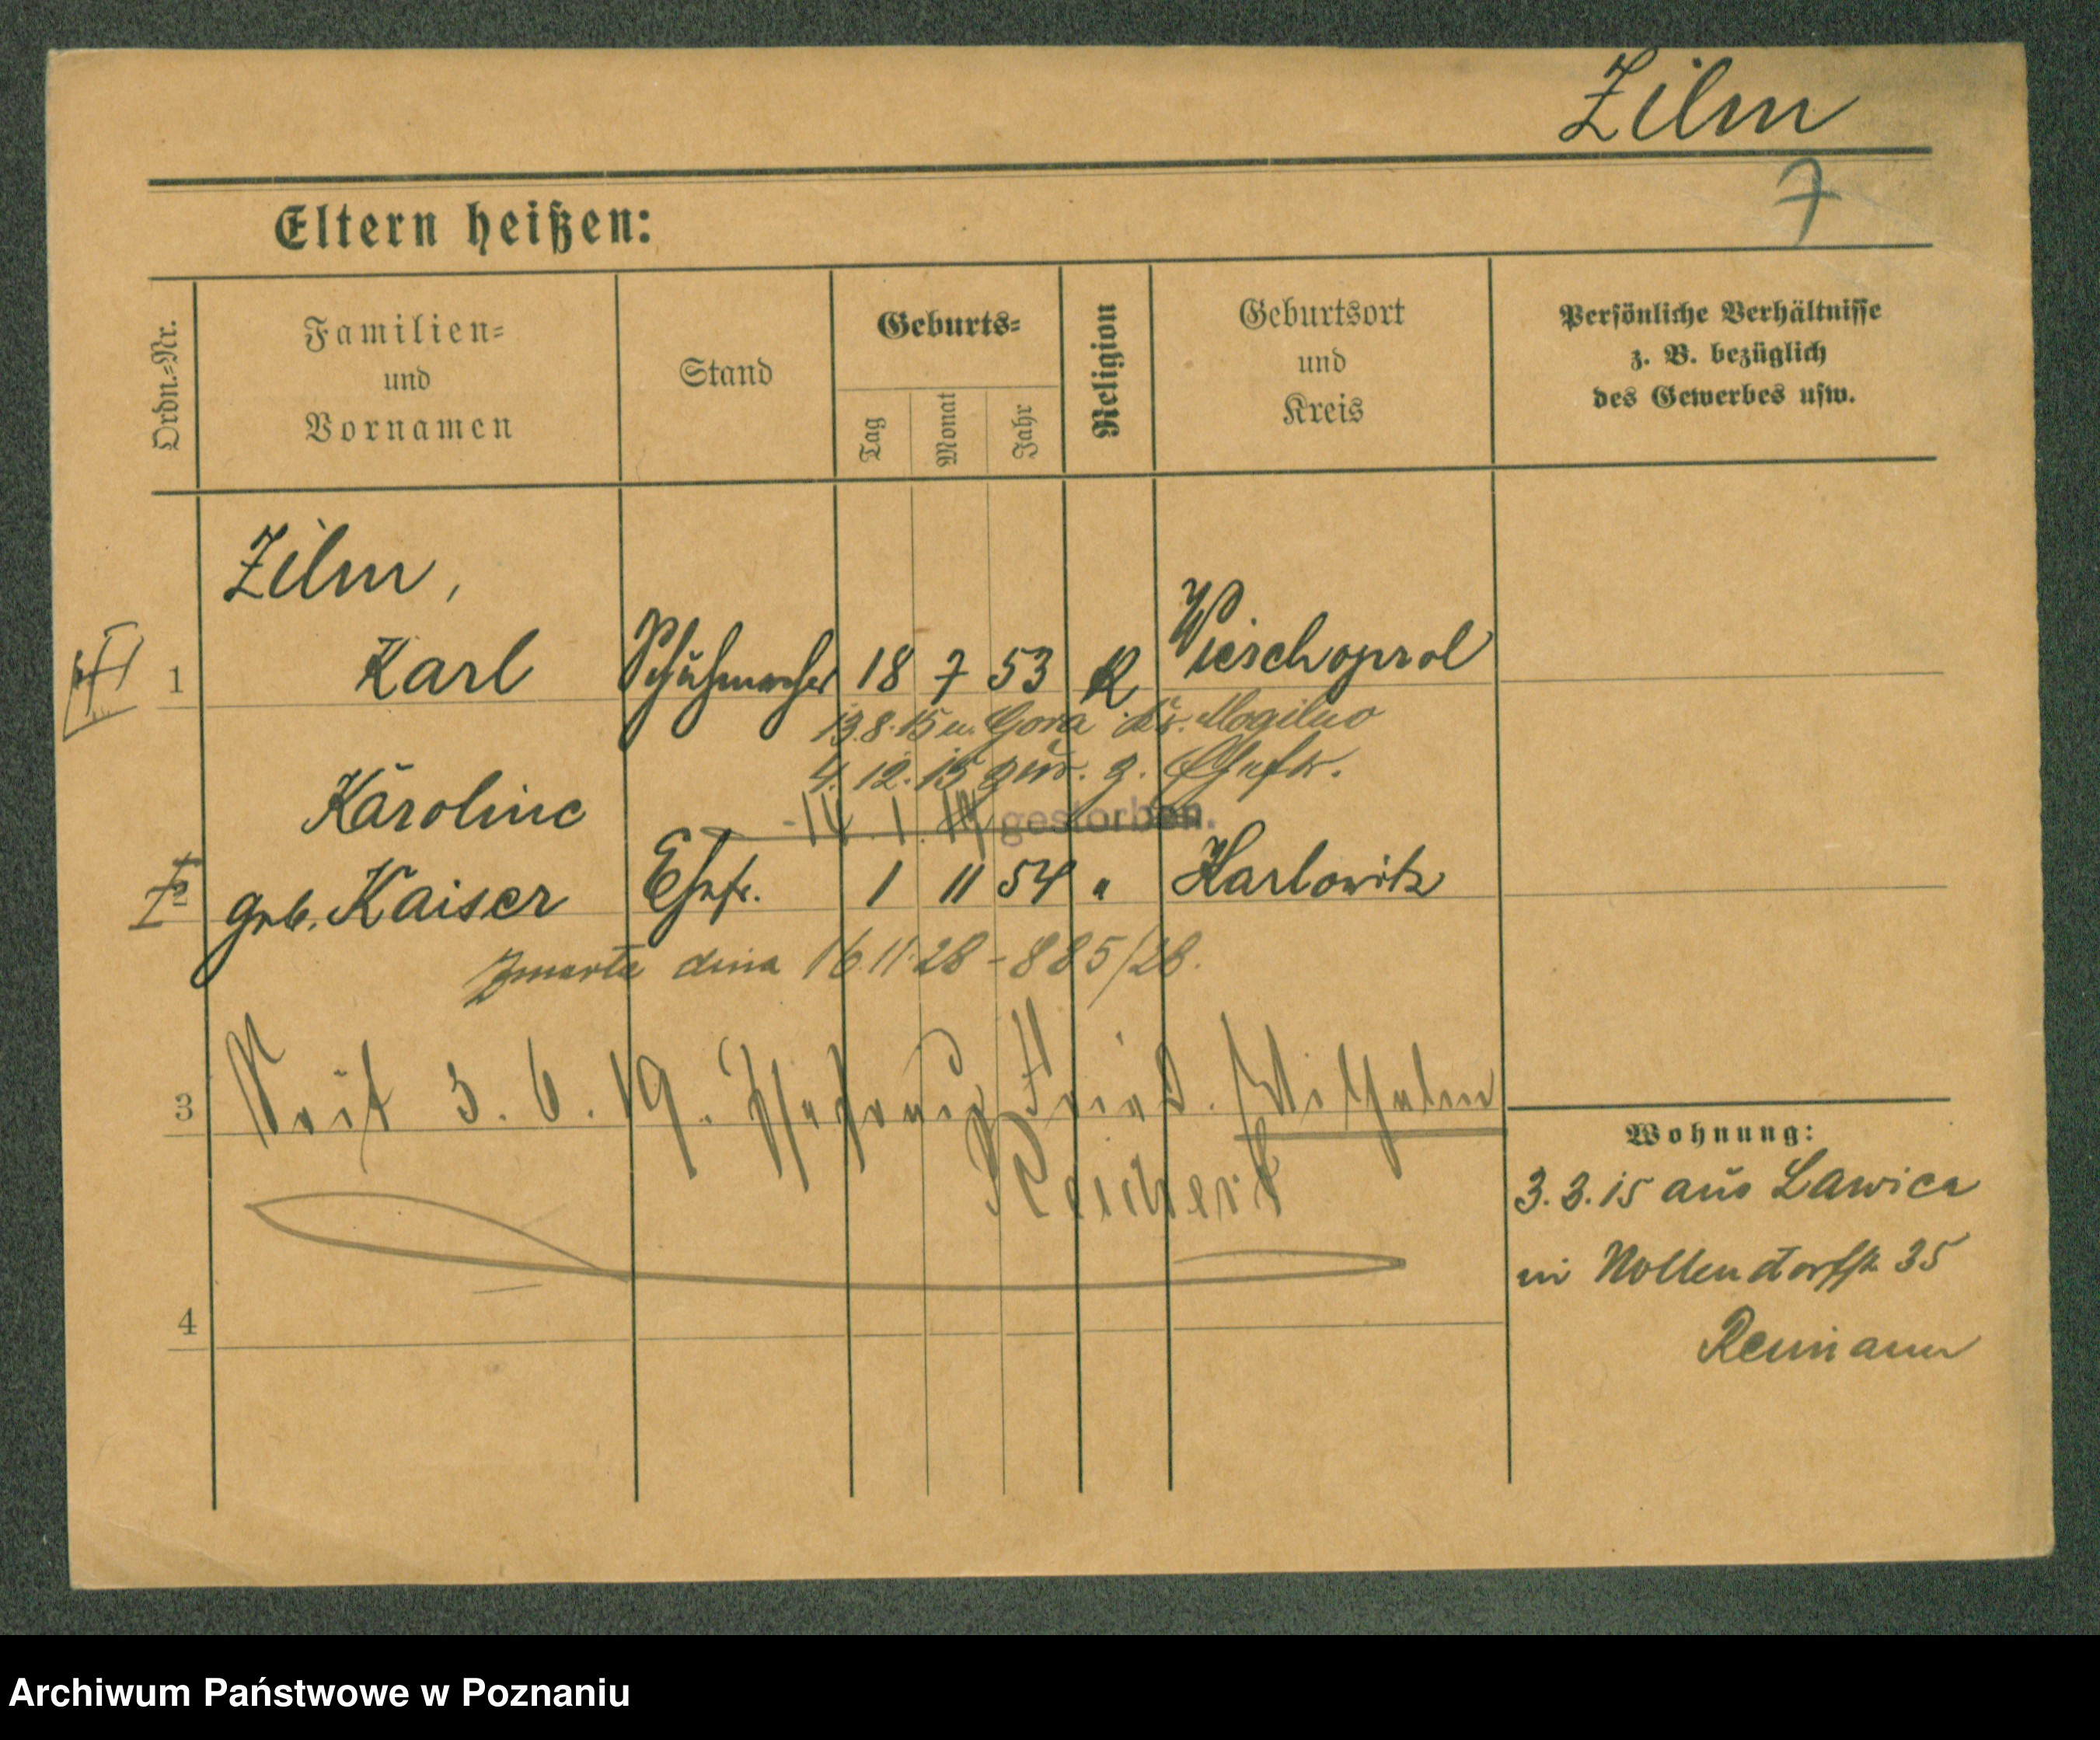 Zilm
7
Eltern heißen:
Ordn.=Nr.
Familien=
und
Vornamen
Stand
Geburts=
Tag
Monat
Jahr
Religion
Geburtsort
und
Kreis
Persönliche Verhältnisse
z. B. bezüglich
des Gewerbes usw.
Zilm,
1 Karl Schuhmacher 18 7 53 K Wieschoprol
13.8.15 n. Gora Kr. Mogilno
4.12.15 zur. z. Ehefr.
-14.1.19 gestorben.
Karoline
geb. Kaiser Ehefr. 1 11 54 " Karlowitz
Zmarła dnia 16.11.28 - 885/28.
3 Seit 3.6.19. Fried. Wilhelm
Reichert
4
Wohnung:
3.3.15 aus Lawica
in Nollendorfstr. 35
Reimann
Archiwum Państwowe w Poznaniu